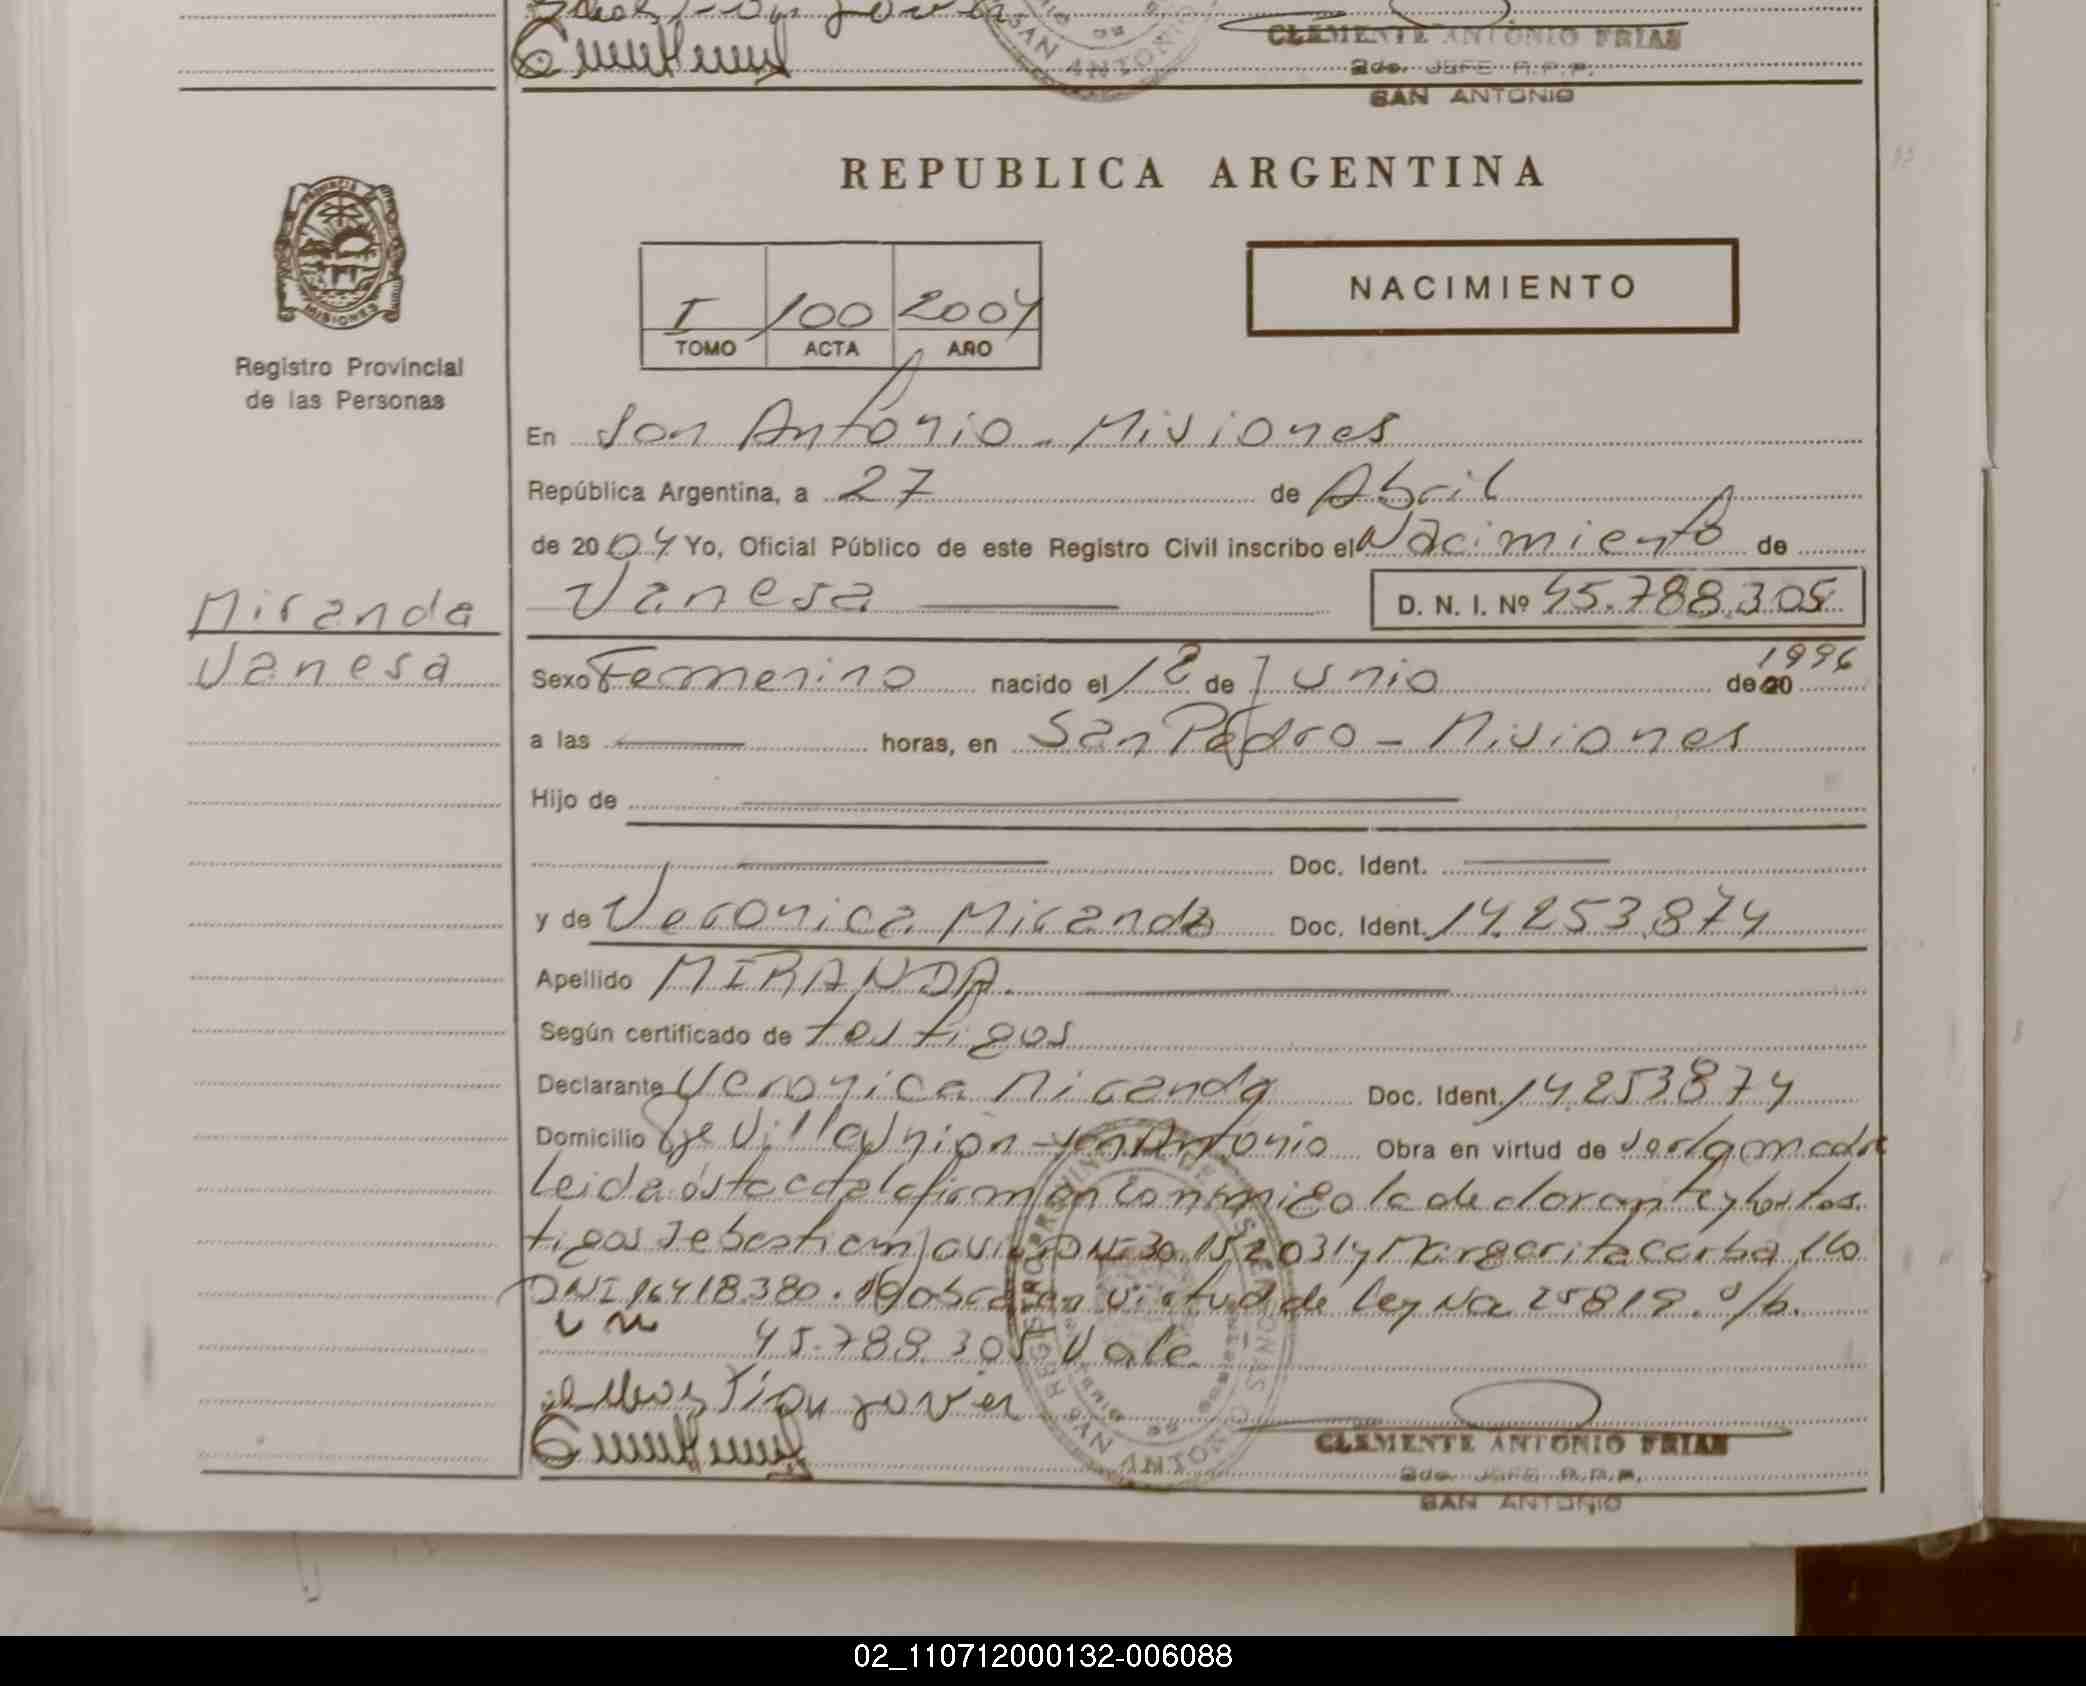 CLEMENTE ANTONIO FRIAS
2do. JEFE R.P.P.
SAN ANTONIO
SAN ANTONIO
REPUBLICA ARGENTINA
PROVINCIA DE
MISIONES
Registro Provincial
de las Personas
I 100 2004
TOMO ACTA AÑO
NACIMIENTO
En San Antonio - Misiones
República Argentina, a 27 de Abril
de 2004 Yo, Oficial Público de este Registro Civil inscribo el Nacimiento de
Vanesa D. N. I. Nº 45.788.305
Miranda
Vanesa
Sexo Femenino nacido el 12 de Junio de 20 1996
a las horas, en San Pedro - Misiones
Hijo de
Doc. Ident.
y de Veronica Miranda Doc. Ident. 14.253.874
Apellido MIRANDA.
Según certificado de testigos
Declarante Veronica Miranda Doc. Ident. 14.253.874
Domicilio Villa Union - San Antonio Obra en virtud de ser la madre
Leida ésta acta la firman conmigo la declarante y los tes.
tigos Sebastian DNI 30.152031 y Margarita Carballo
DNI 16418.380. obra en virtud de ley Na 25819. o/b.
45.788.305 Vale
CLEMENTE ANTONIO FRIAS
2do. JEFE R.P.P.
SAN ANTONIO
02_110712000132-006088